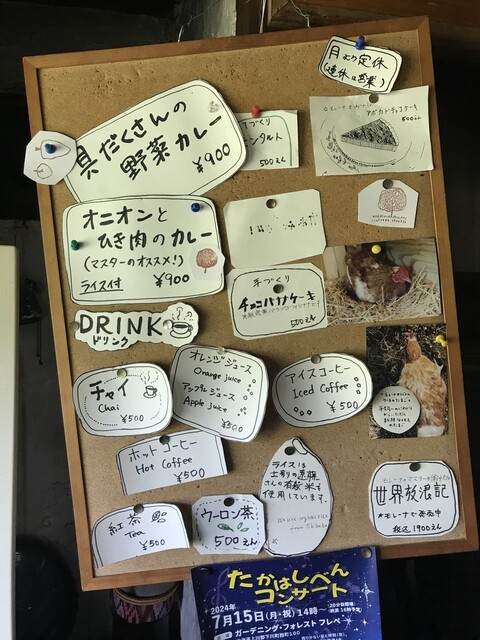 月火定休
(連休は営業)
具だくさんの
野菜カレー
¥900
ンタルト
500えん
アボカドチョコケーキ
500えん
オニオンと
ひき肉のカレー
(マスターのオススメ!)
ライス付 ¥900
手づくり
チョコバナナケーキ
500えん
DRINK
ドリンク
チャイ
Chai
¥500
オレンジジュース
Orange juice
アップルジュース
Apple juice
¥500
アイスコーヒー
Iced Coffee
¥500
ホットコーヒー
Hot Coffee
¥500
ライスは
士別の遠藤
さんの有機米を
使用しています。
紅茶
Tea
¥500
ウーロン茶
500えん
世界放浪記
*モレーナで発売中
税込1900えん
たかはしべん
コンサート
2024年
7月15日(月・祝)14時〜
ガーデニング・フォレスト フレペ